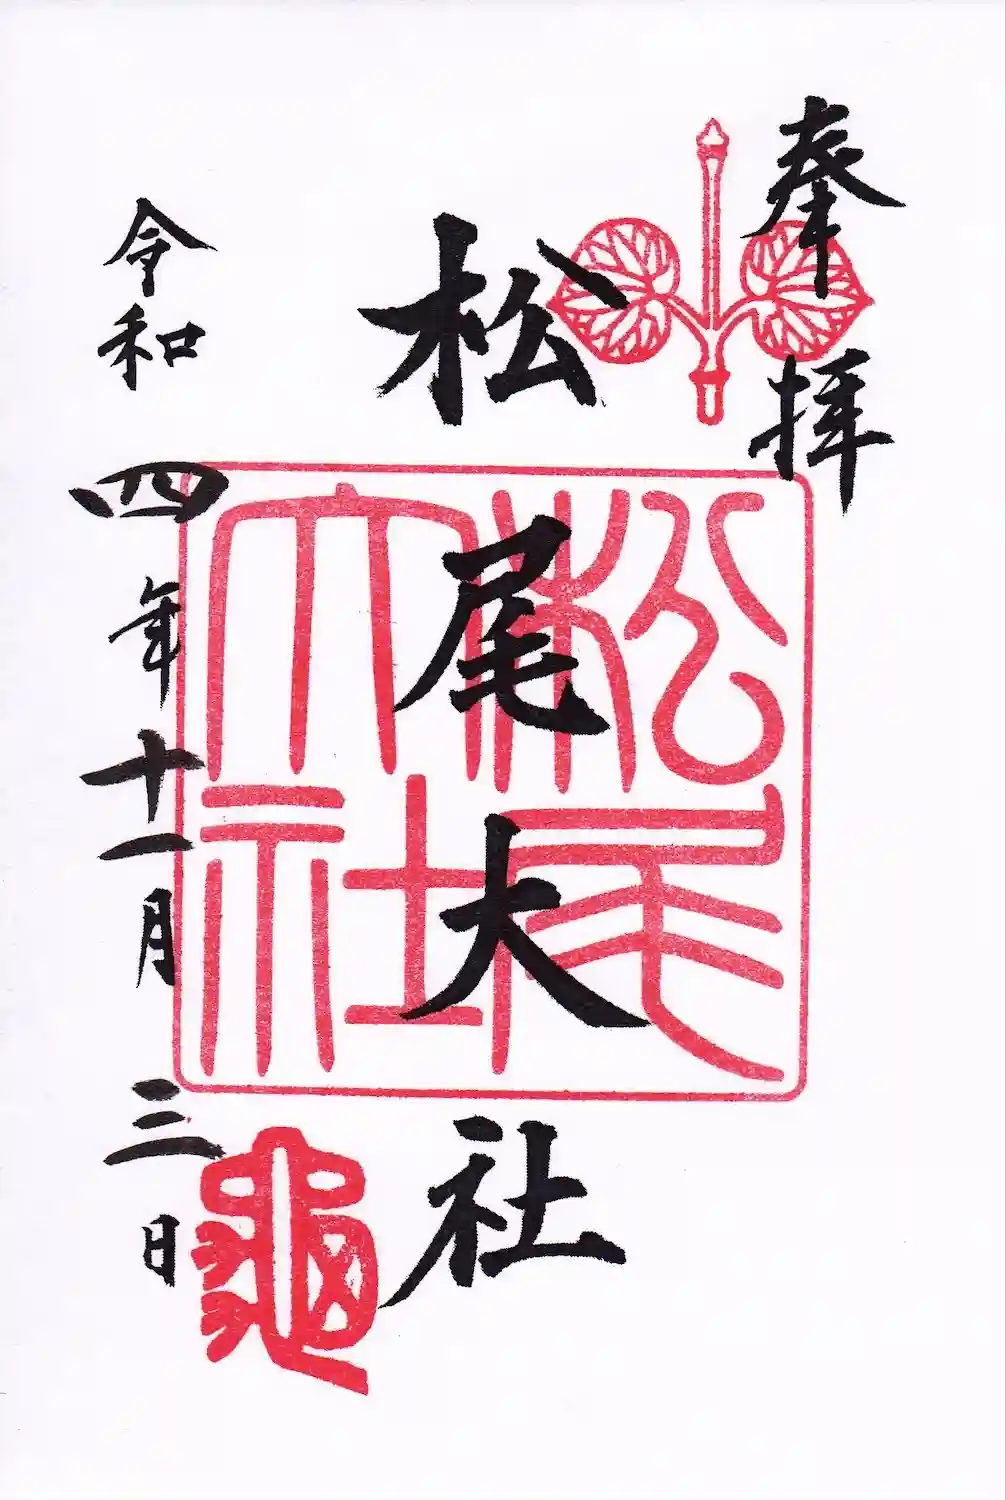 奉拝
松尾大社
令和四年十一月三日
松尾大社
龜